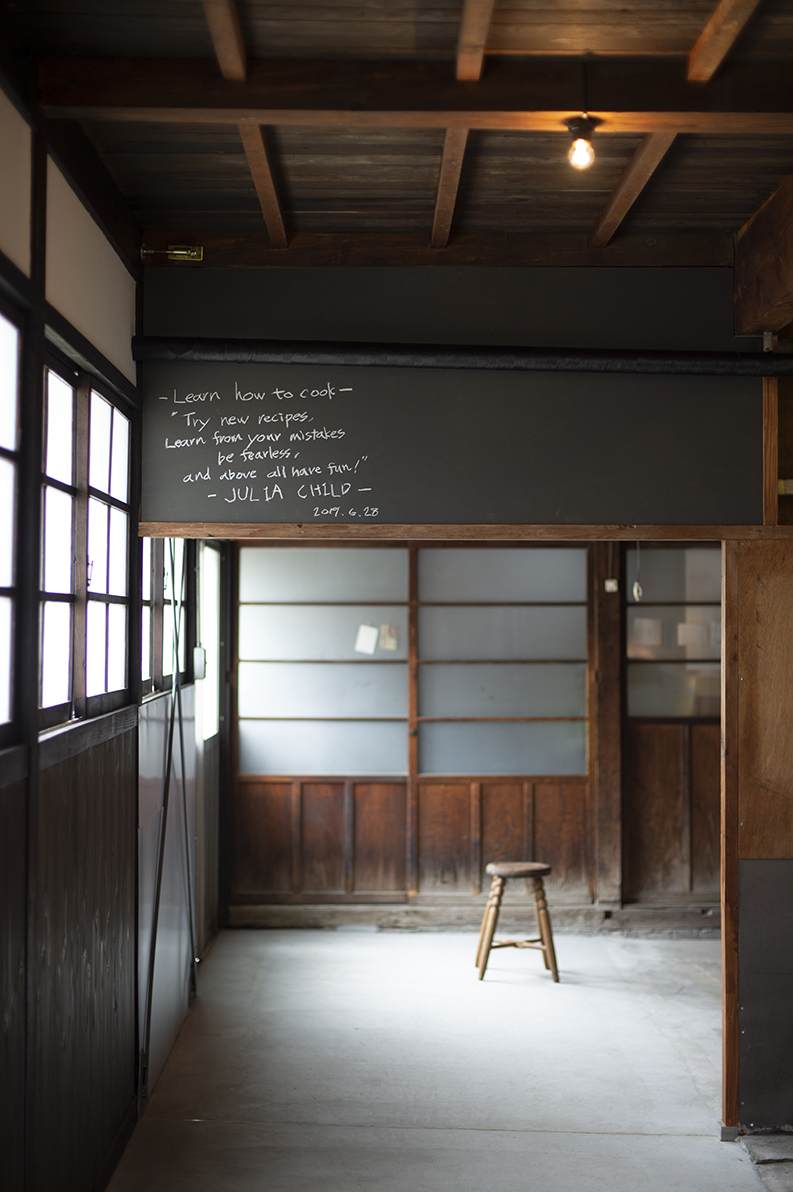 - Learn how to cook -
"Try new recipes,
Learn from your mistakes
be fearless,
and above all have fun!"
- JULIA CHILD -
2017.6.28